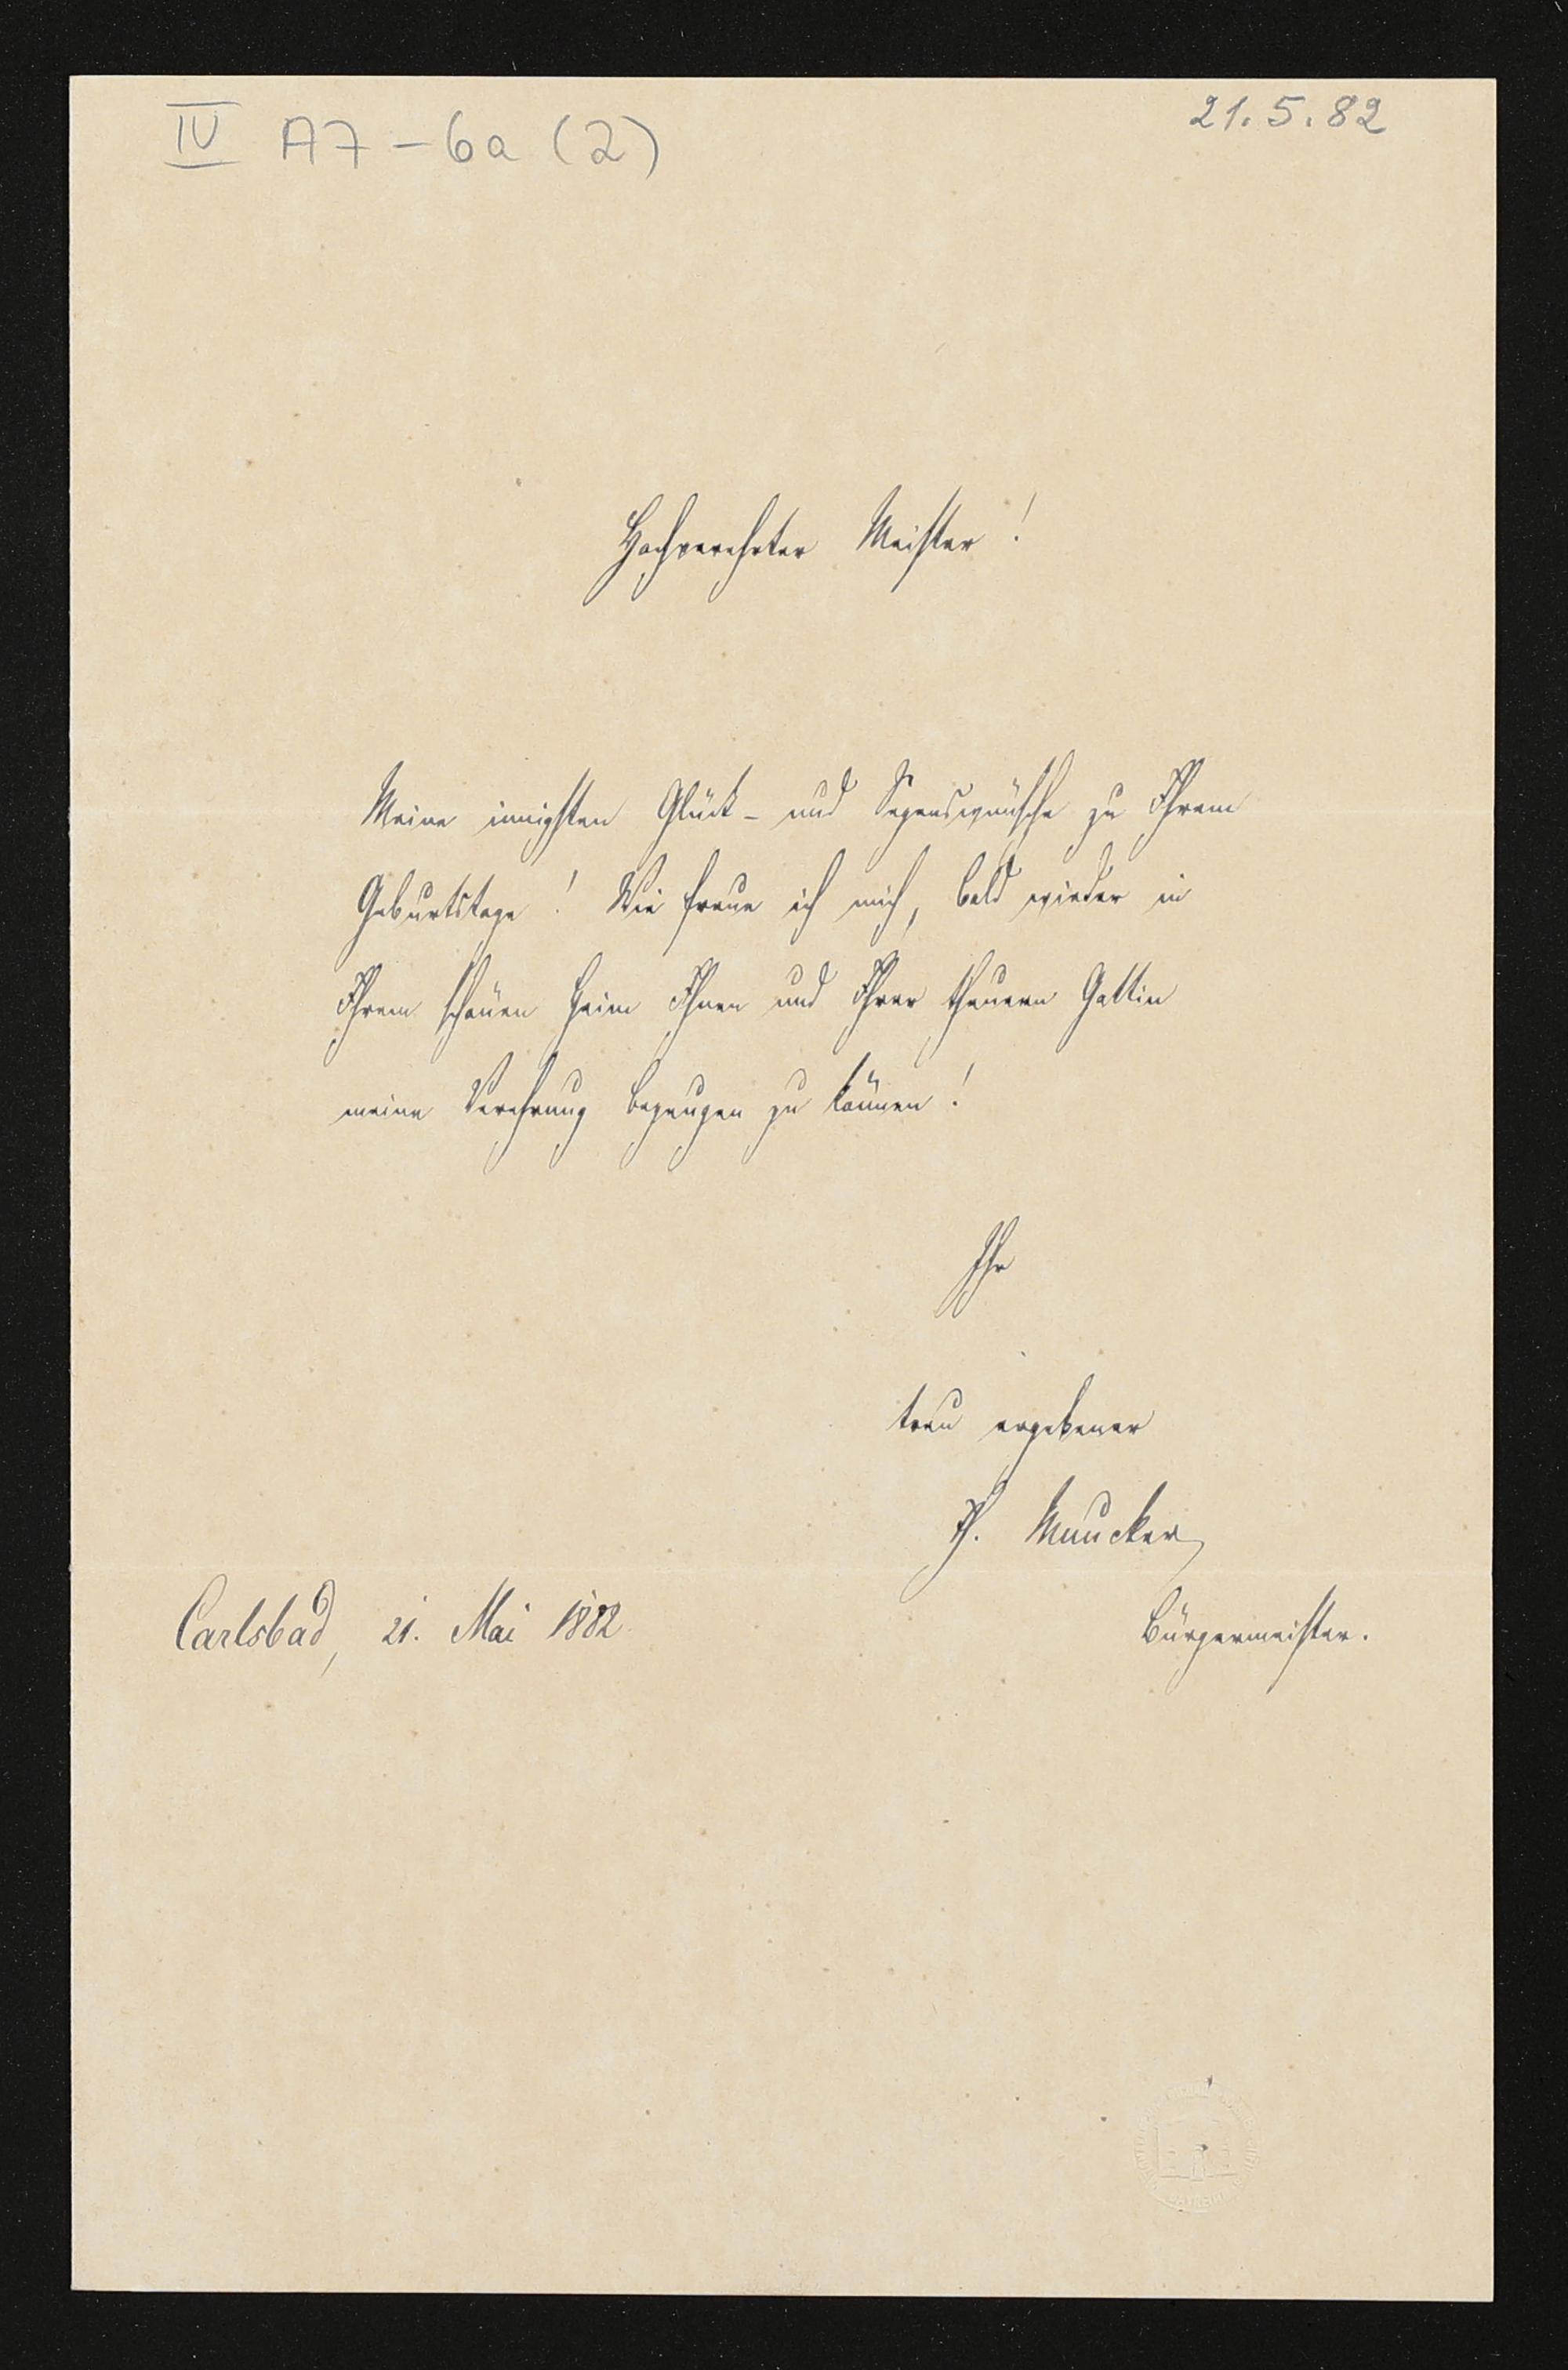 IV A7 - 6a (2)
21. 5. 82
Hochverehrter Meister!
Meine innigsten Glück- und Segenswünsche zu Ihrem
Geburtstage! Wie freue ich mich, bald wieder in
Ihrem schönen Heim Ihnen und Ihrer theuern Gattin
meine Verehrung bezeugen zu können!
Ihr
treu ergebener
Th. Muncker
Bürgermeister.
Carlsbad, 21. Mai 1882.